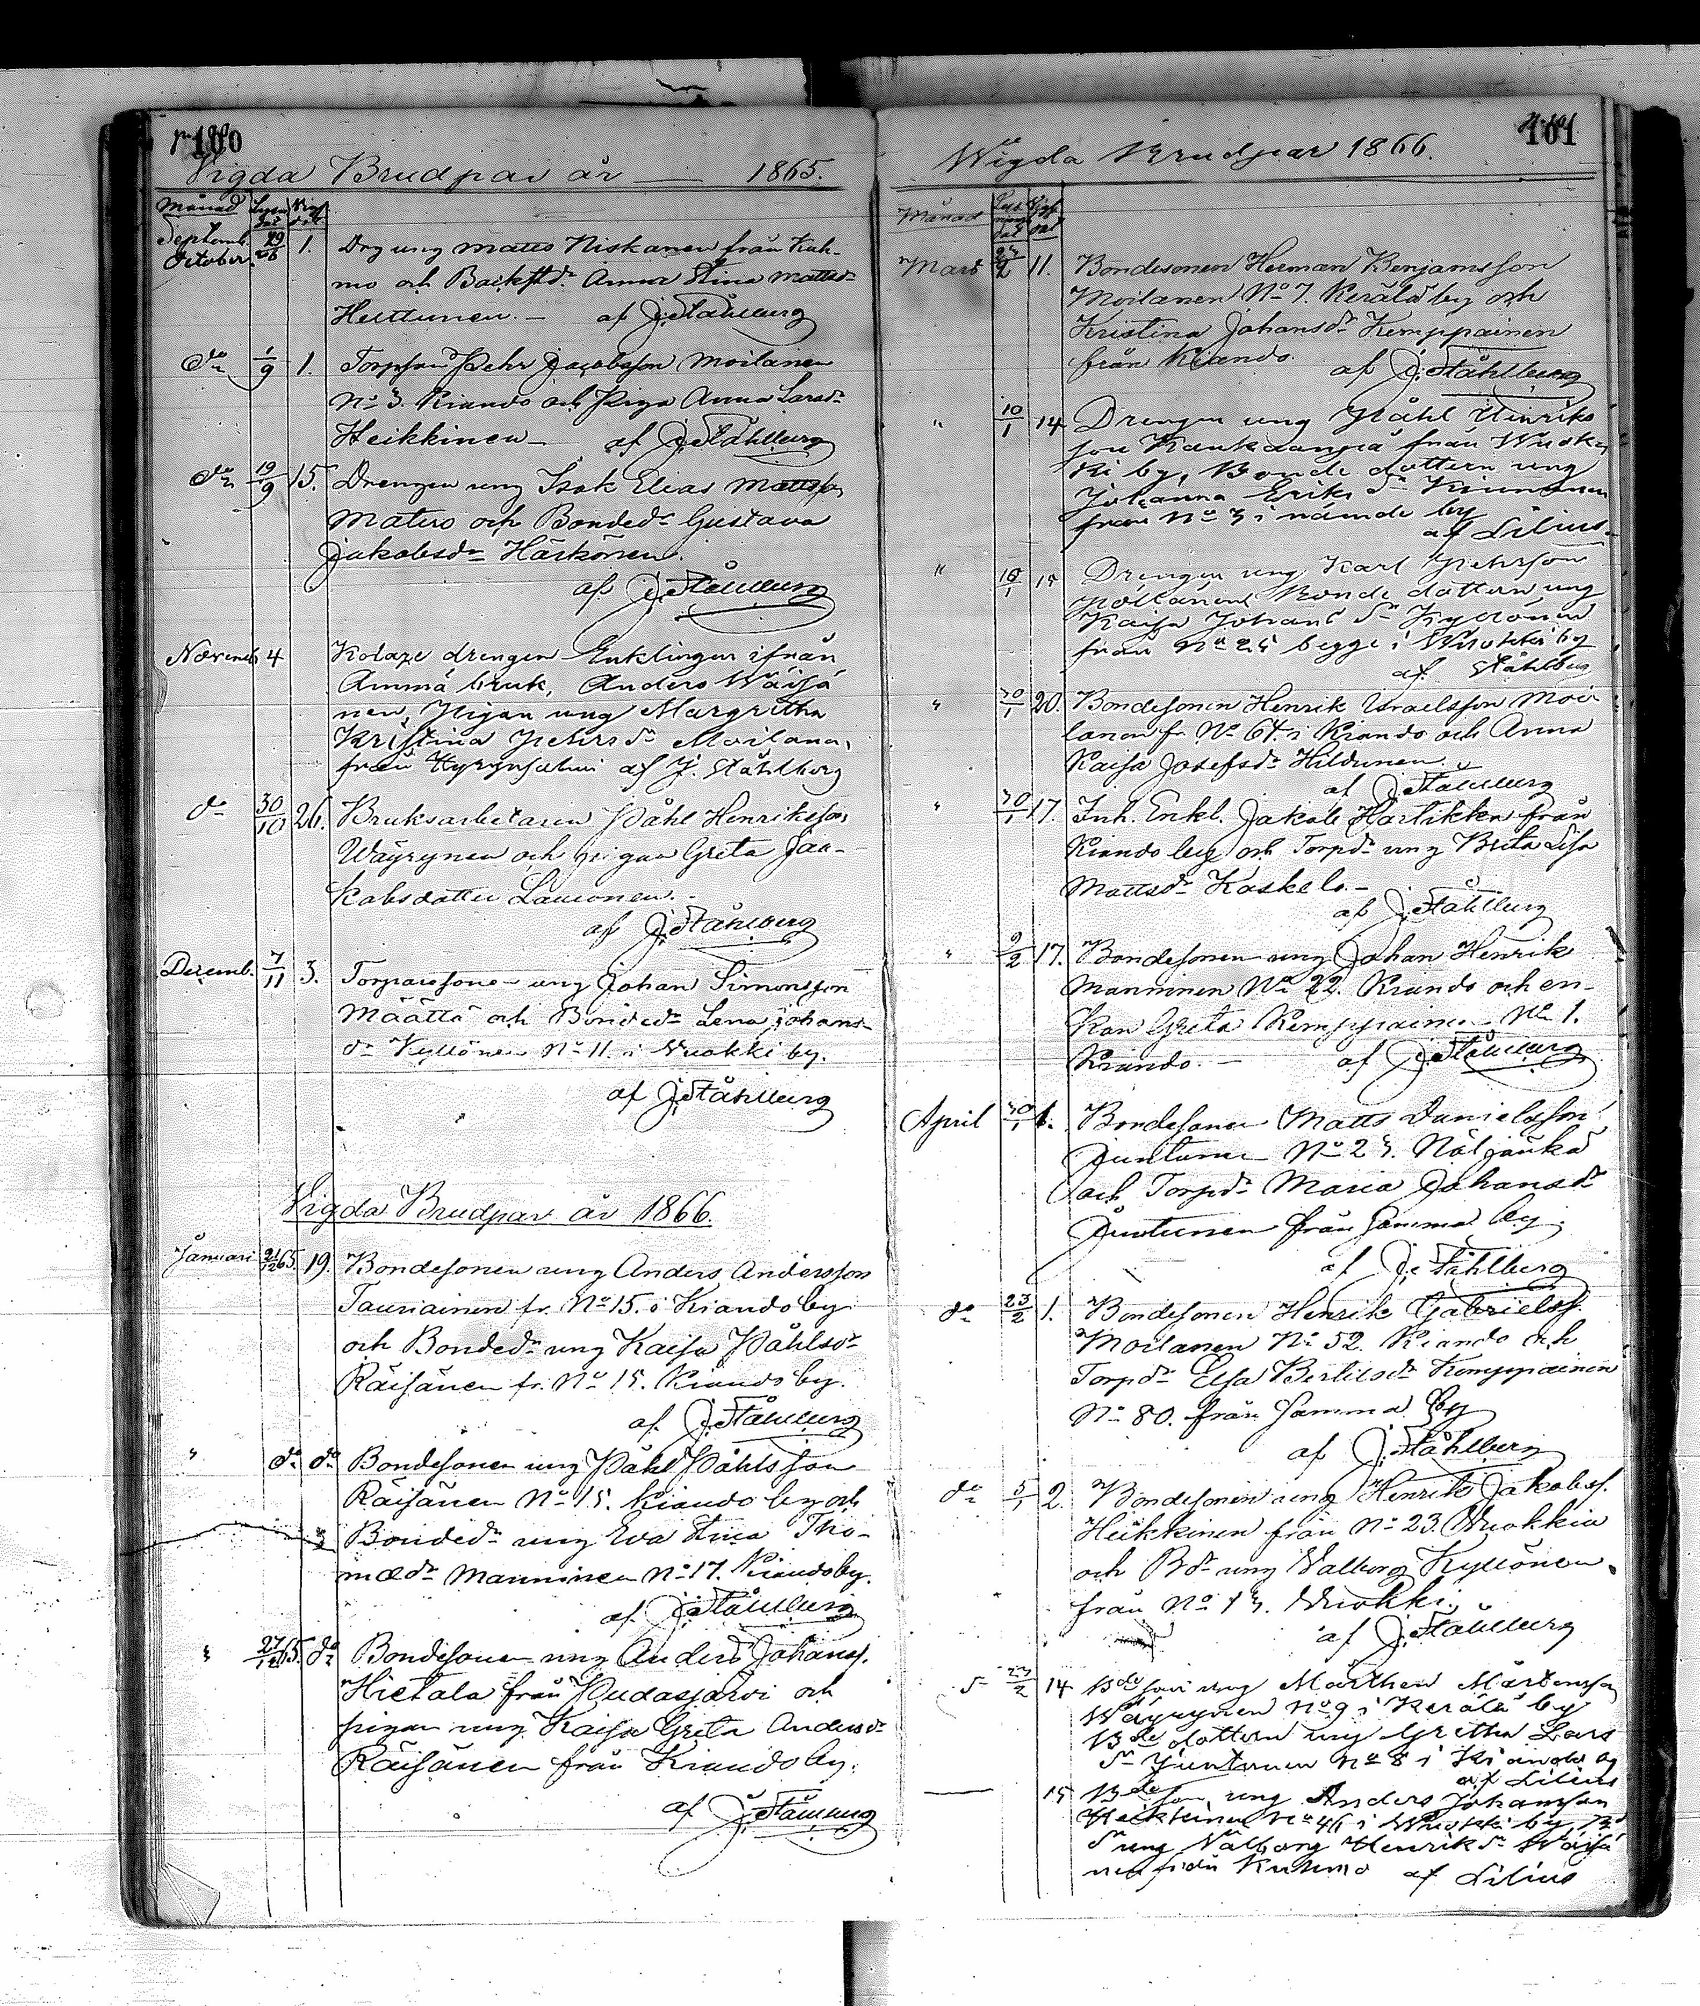 100
Vigda Brudpar år — 1865.
Månad
Septemb. October. 29/26 1. Drg ung Matts Niskanen från Kuh-
mo och Backstd. Anna Stina Mattsdr
Heittunen. — af J. Ståhlberg
do 1/9 1. Torpson Pehr Jacobsson Moilanen
No 3. Kiando och Piga Anna Larsdr
Heikkinen — af J. Ståhlberg
do 19/9 15. Drengen ung Isak Elias Mattsson
Matero och Bondedr Gustava
Jakobsdr Härkönen.
af J. Ståhlberg
Novemb 4 Kolare drengen Enklingen ifrån
Ämmä bruk, Anders Wäisä
nen, Pigan ung Margretha
Kristina Pehrsdr Moilanen
från Hyrynsalmi af J. Ståhlberg
do 30/10 26. Bruksarbetaren Påhl Henriksson
Wäyrynen och pigan Greta Jaa-
kobsdotter Lauronen. -
af J. Ståhlberg
Decemb. 7/11 3. Torparesone- ung Johan Simonsson
Määttä och Bondedr Lena Johans-
dr Kyllönen No 11. i Wuokki by.
af J. Ståhlberg
Vigda Brudpar år 1866.
Januari 21/12 65. 19. Bondesonen ung Anders Andersson
Tauriainen fr. No 15. i Kiando by
och Bondedr ung Kaisa Påhlsdr
Räisänen fr. No 15. Kiando by.
af J. Ståhlberg
" do do Bondesonen ung Påhl Påhlsson
Räisänen No 15. Kiando by och
Bondedr ung Eva Stina Tho-
mædr Manninen No 17. Kiando by.
af J. Ståhlberg
" 27/12 65. do Bondesonen ung Anders Johanss.
Hietala från Pudasjärvi och
pigan ung Kaisa Greta Andersdr
Räisänen från Kiando by.
af J. Ståhlberg
101
Wigda Brudpar 1866.
Månad
Mars 27/2 11. Bondesonen Herman Benjamsson
Moilanen No 7. Kerälä by och
Kristina Johansdr Kemppainen
från Kiando. af J. Ståhlberg
" 10/1 14 Drengen ung Påhl Hinriks
son Kankaanpää från Wuok
ki by, Bonde dottern ung
Johanna Eriks dr Kinnunen
från No 3 i nämde by
af Lilius.
" 16/1 15 Drengen ung Karl Pehrsson
Pöllänen Bonde dottern ung
Kaisa Johans dr Kyllönen
från No 25 begge i Wuokki by
af Ståhlberg
" 30/1 20. Bondesonen Henrik Israelsson Moi-
lanen fr. No 64. i Kiando och Anna
Kaisa Josefsdr Hildunen.
af J. Ståhlberg
" 30/1 17. Inh. Enkl. Jakob Hartikka från
Kiando by och Torpdr ung Brita Lisa
Mattsdr Koskelo. -
af J. Ståhlberg
" 9/2 17. Bondesonen ung Johan Henrik
Manninen No 22. Kiando och en-
kan Greta Kemppainen No 1.
Kiando. — af J. Ståhlberg
April 30/1 1. Bondesonen Matts Danielsson
Juntunen No 23. Näljänkä
och Torpdr Maria Johansdr
Juntunen från samma by.
af J. Ståhlberg
do 23/2 1. Bondesonen Henrik Gabrielss.
Moilanen No 52. Kiando och
Torpdr Elsa Bertilsdr Kemppainen
No 80. från samma by
af J. Ståhlberg
do 5/1 2. Bondesonen ung Henrik Jakobss.
Heikkinen från No 23. Wuokki
och Bdr ung Valborg Kyllönen
från No 13. Wuokki.
af J. Ståhlberg
23/2 14 Bdeson ung Mårthen Mårtensson
Wäyrynen No 9 i Kerälä by
Bde dottern ung Gretha Lars
dr Juntunen No 8 i Kiando by
af Lilius
15 Bdeson, ung Anders Johansson
Heikkinen No 46 i Wuokki by, Bd
dr ung Valborg Henriks dr Wäisä
nen från Kuhmo af Lilius